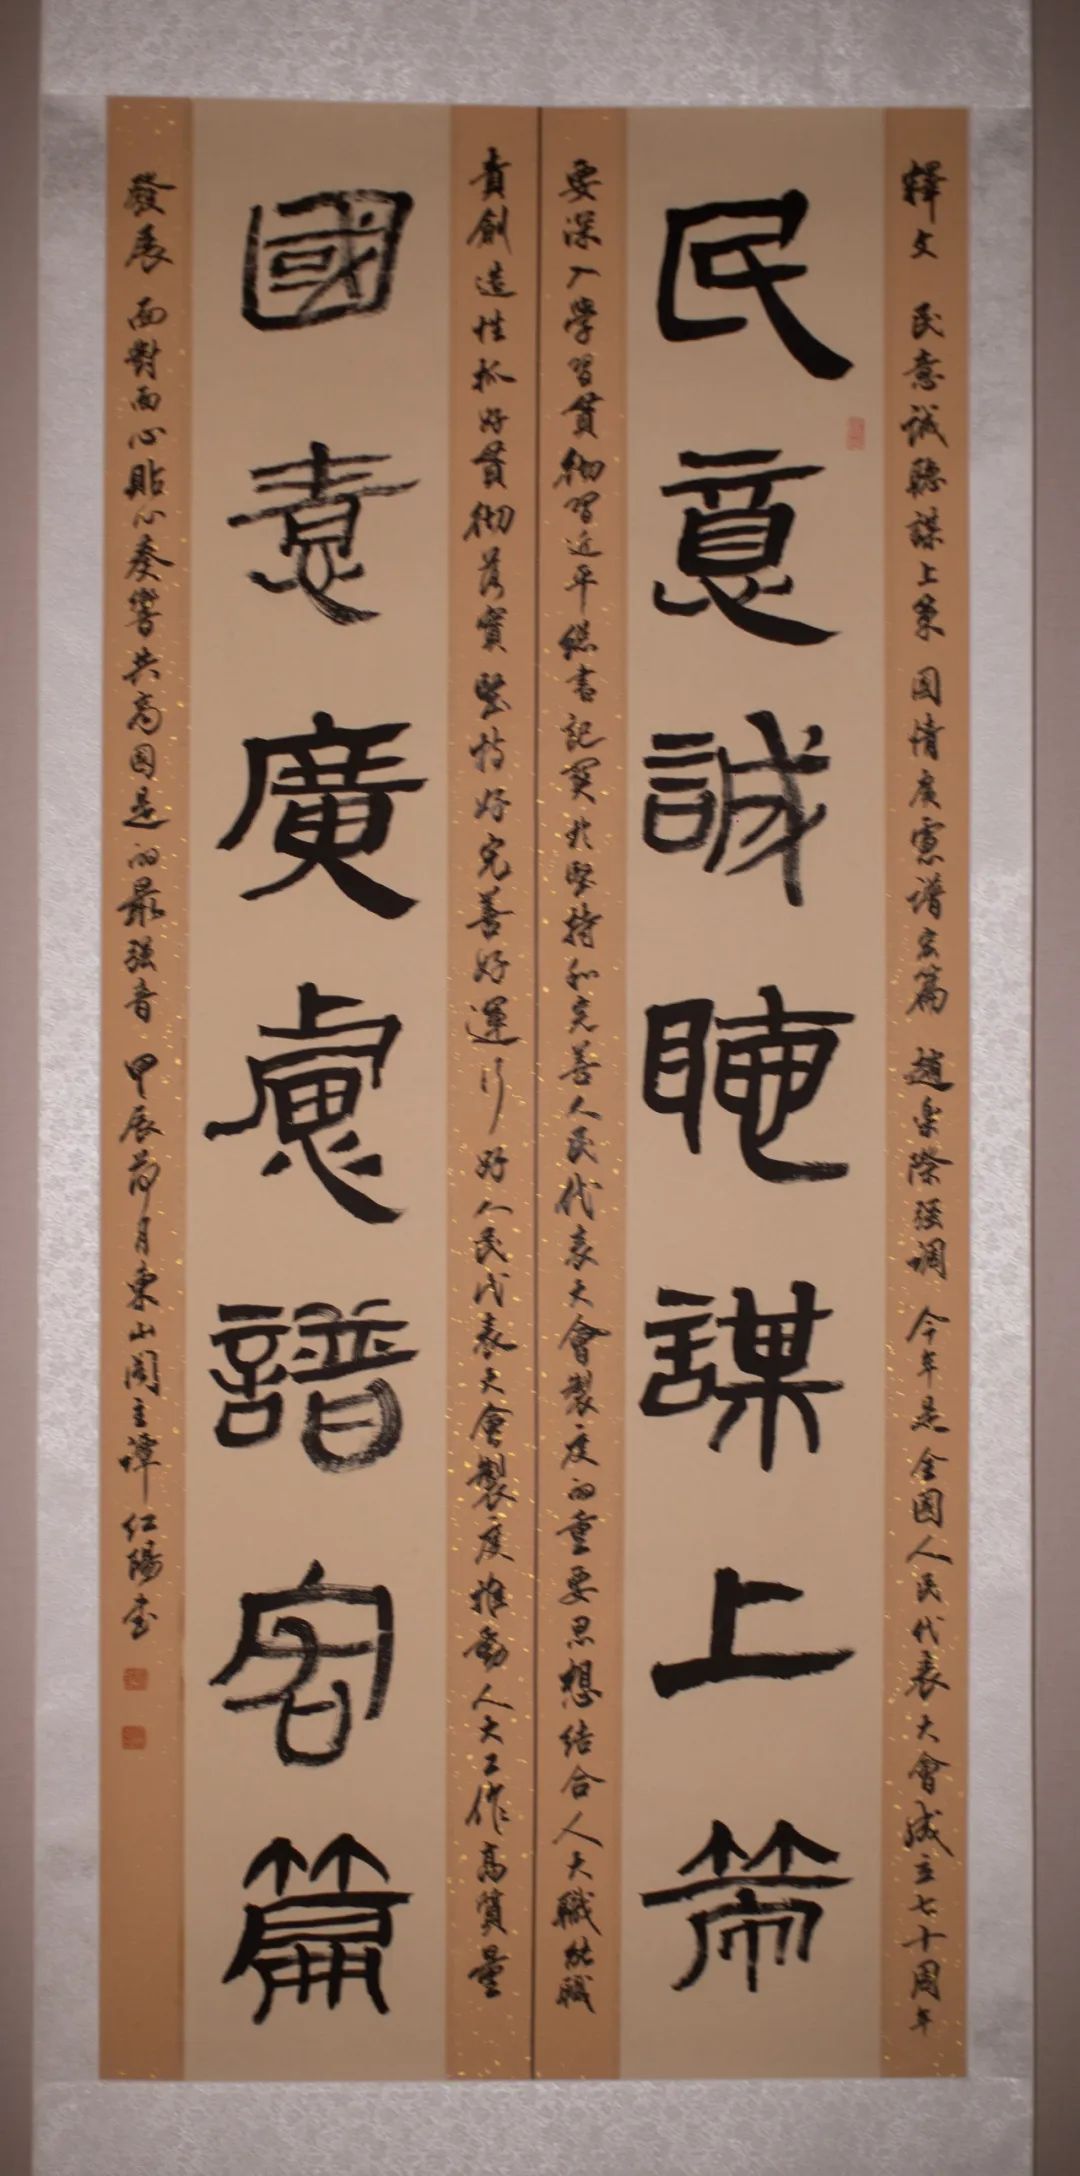 釋文 民意誠聽謀上策 国情廣慮譜宏篇 趙樂際强調 今年是全国人民代表大會成立七十周年
民意誠聽謀上策
要深入學習貫徹習近平總書記關於堅持和完善人民代表大會製度的重要思想結合人大職能職
責創造性抓好貫徹落實 堅持好完善好運行好人民代表大會製度推動人大工作高質量
國情廣慮譜宏篇
發展 面對面心貼心奏響共商国是的最强音 甲辰荷月東山閣主譚紅陽書